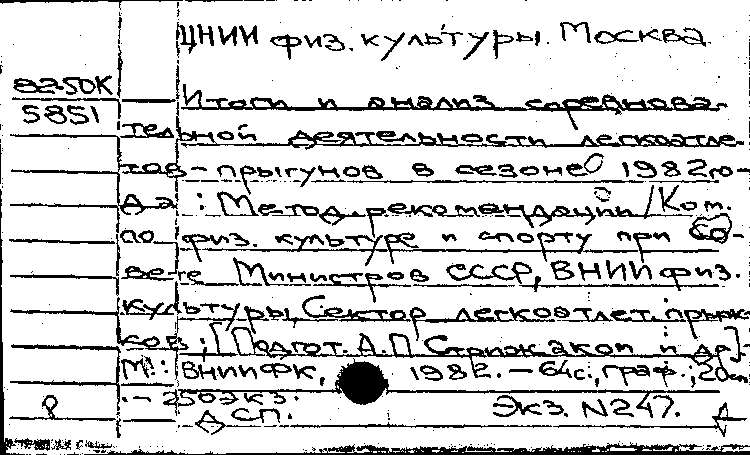 ЦНИИ физ. культуры. Москва
8250К
5851
Итоги и анализ соревнова-
тельной деятельности легкоатле-
тов-прыгунов в сезоне 1982 го-
да: Метод. рекомендации / Ком.
по физ. культуре и спорту при Со-
вете Министров СССР, ВНИИ физ.
культуры, Сектор легкоатлет. прыж-
ков; [Подгот. А.П. Стрижак и др.].
М.: ВНИИФК, 1982. – 64 с., граф.; 20см
. – 250 экз.
Р
ДСП. Экз. N247.